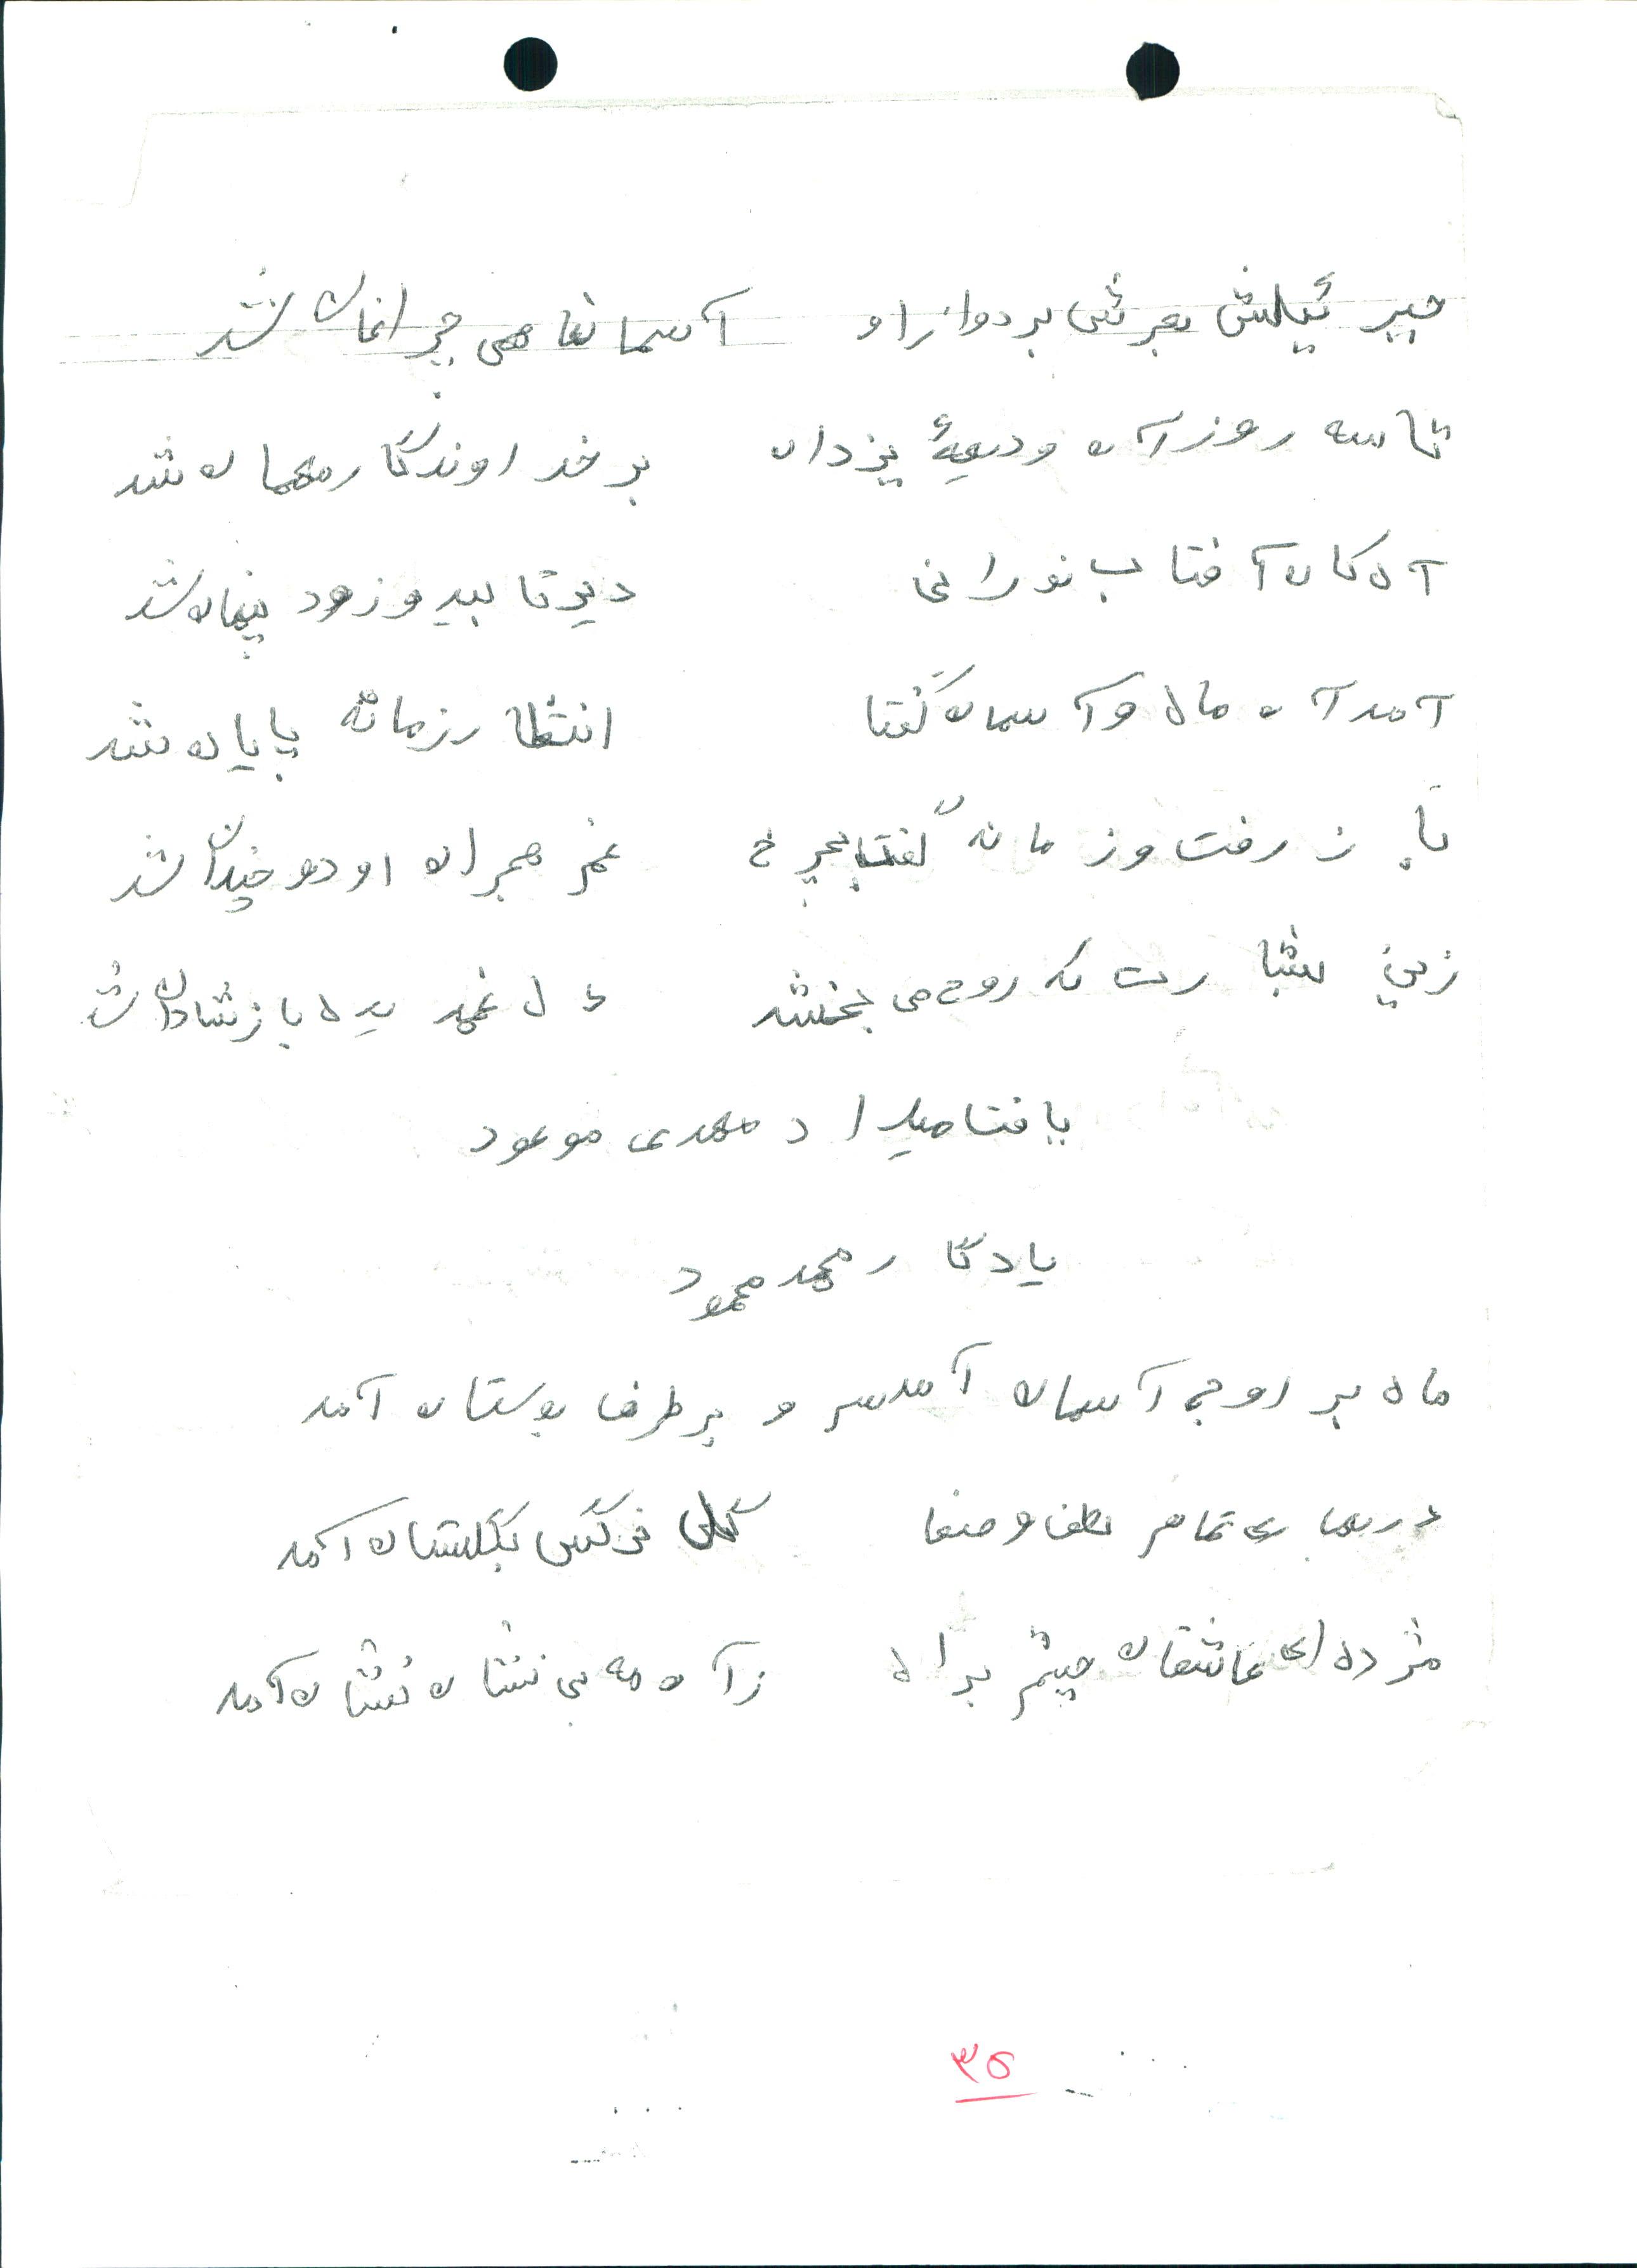 جبرئیلش بعرش برد و از او آسمانها همی چراغان شد
تا سه روز آن ودیعهٔ یزدان بر خداوندگار مهمان شد
آه کان آفتاب نورانی دیر تابید و زود پنهان شد
آمد آن ماه و آسمان گفتا انتظار زمانه پایان شد
باز رفت و زمانه گفتا بچرخ غم هجران او دو چندان شد
زین بشارت که روح می بخشد دل غمدیده باز شادان شد
یافت میلاد مهدی موعود
یادگار محمد محمود
ماه بر اوج آسمان آمد سرو بر طرف بوستان آمد
در بهاری تمام لطف و صفا گل نرگس بگلستان آمد
مژده ای عاشقان چشم براه زآن مه بی نشان نشان آمد
۳۵